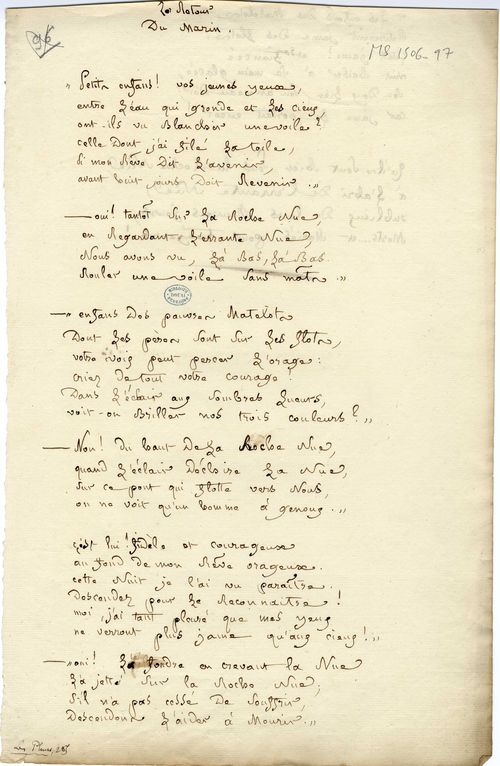 Le Retour
Du Marin.
96
MS 1506-97
« Petits enfans! vos jeunes yeux,
entre l'eau qui gronde et les cieux,
ont-ils vu Blanchir une voile?
celle Dont j'ai filé la toile,
Si mon Rêve Dit l'avenir,
avant huit jours Doit Revenir. »
— oui! tantôt sur la Roche Nue,
en Regardant l'errante Nue,
Nous avons vu, là Bas, là Bas
Rouler une voile sans mâts. »
— enfans Des pauvres Matelots
Dont les pères sont sur les flots,
votre voix peut percer l'orage:
criez de tout votre courage!
Dans l'éclair aux sombres lueurs,
voit-on Briller nos trois couleurs? »
— Non! du haut De la Roche Nue,
quand l'éclair Déchire la Nue,
sur ce pont qui flotte vers Nous,
on ne voit qu'un homme à genoux. »
c'est lui! fidèle et courageux
au fond de mon Rêve orageux.
cette Nuit je l'ai vu paraître.
Descendez pour le Reconnaître!
moi, j'ai tant pleuré que mes yeux
ne verront plus jame qu'aux cieux! »
— oui! la foudre en crevant la Nue
l'a jeté sur la Roche Nue;
S'il n'a pas cessé De Souffrir,
Descendons l'aider à Mourir. »
Les Pleurs, 285